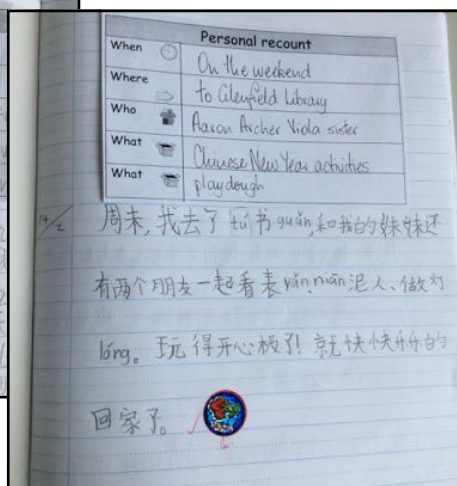 Personal recount
When On the weekend
Where to Glenfield Library
Who Aaron Archer Viola sister
What Chinese New Year activities
What playdough
14/2 周末，我去了tú书guǎn，和我的妹妹还
有两个朋友一起看表yǎn，niān泥人、做灯
lóng。玩得开心极了！就快快乐乐的
回家了。